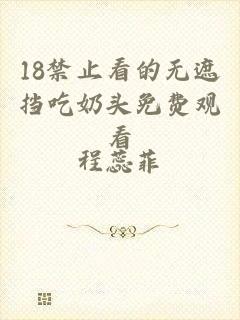 18禁止看的无遮
挡吃奶头免费观
看
程蕊菲